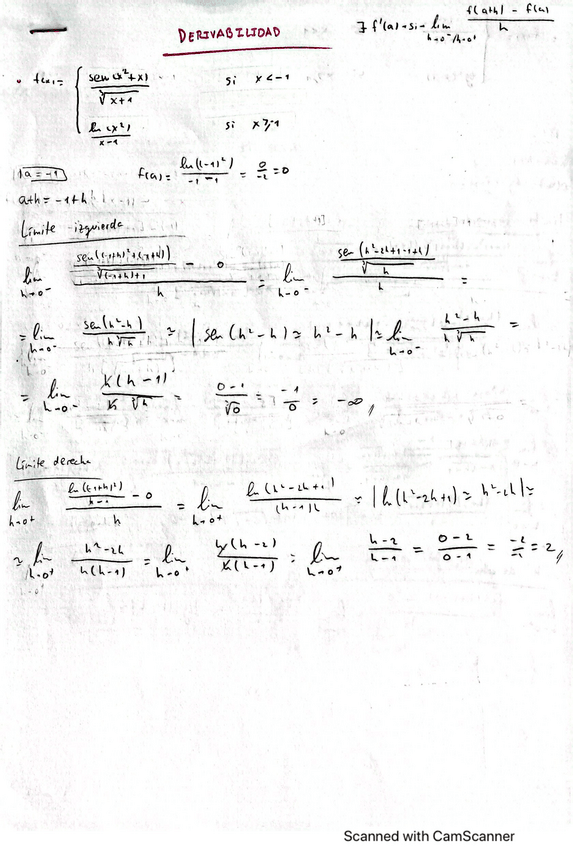 DERIVABILIDAD
∃ f'(a) si lim h→0⁻/h→0⁺ (f(a+h) - f(a))/h
f(x) = { sen(x²+x)/∛(x+1) si x < -1
ln(x²)/(x-1) si x ≥ -1
a = -1 f(a) = ln((-1)²)/(-1-1) = 0/-2 = 0
a+h = -1+h
Límite izquierda
lim h→0⁻ (sen((-1+h)²+(-1+h))/∛((-1+h)+1) - 0)/h = lim h→0⁻ (sen(h²-2h+1-1+h)/∛h)/h =
= lim h→0⁻ sen(h²-h)/(h∛h) ≈ | sen(h²-h) ≈ h²-h | ≈ lim h→0⁻ (h²-h)/(h∛h) =
= lim h→0⁻ h(h-1)/(h∛h) = (0-1)/∛0 = -1/0 = -∞
Límite derecha
lim h→0⁺ (ln((-1+h)²)/(h-1) - 0)/h = lim h→0⁺ ln(h²-2h+1)/((h-1)h) ≈ | ln(h²-2h+1) ≈ h²-2h | ≈
≈ lim h→0⁺ (h²-2h)/(h(h-1)) = lim h→0⁺ h(h-2)/(h(h-1)) = lim h→0⁺ (h-2)/(h-1) = (0-2)/(0-1) = -2/-1 = 2
Scanned with CamScanner